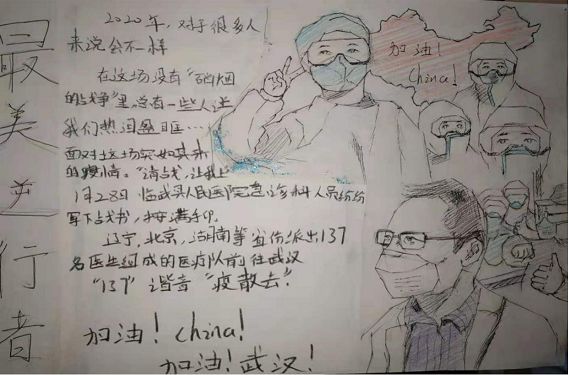 最美逆行者
2020年，对于很多人
来说会不一样
在这场没有“硝烟
的战争”里总有一些人让
我们热泪盈眶…
面对这场突如其来
的疫情。“请战，让我上
1月28日 临武县人民医院急诊科人员纷纷
写下战书，按满手印。
辽宁，北京，湖南等省份派出137
名医生组成的医疗队前往武汉
“137”谐音“疫散去！”
加油！China！
加油！武汉！
加油！
China！